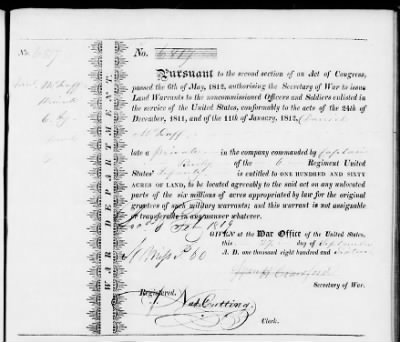 No.
Pursuant to the second section of an Act of Congress,
passed the 6th of May, 1812, authorising the Secretary of War to issue
Land Warrants to the noncommissioned Officers and Soldiers enlisted in
the service of the United States, conformably to the acts of the 24th of
December, 1811, and of the 11th of January, 1812, Daniel
late a private in the company commanded by Captain
of the 6 Regiment United
States' Infantry is entitled to ONE HUNDRED AND SIXTY
ACRES OF LAND, to be located agreeably to the said act on any unlocated
parts of the six millions of acres appropriated by law for the original
grantees of such military warrants; and this warrant is not assignable
or transferable in any manner whatever.
GIVEN at the War Office of the United States,
this 27 day of September
A. D. one thousand eight hundred and
Secretary of War.
Registered,
Nat. Cutting,
Clerk.
WAR DEPARTMENT.